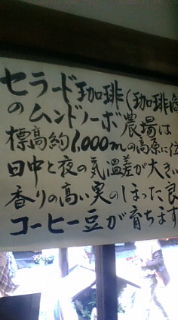 セラード珈琲(珈琲
のムンドノーボ農場は
標高約1,000mの高原に位
日中と夜の気温差が大きい
香りの高い実のしまった良
コーヒー豆が育ちます